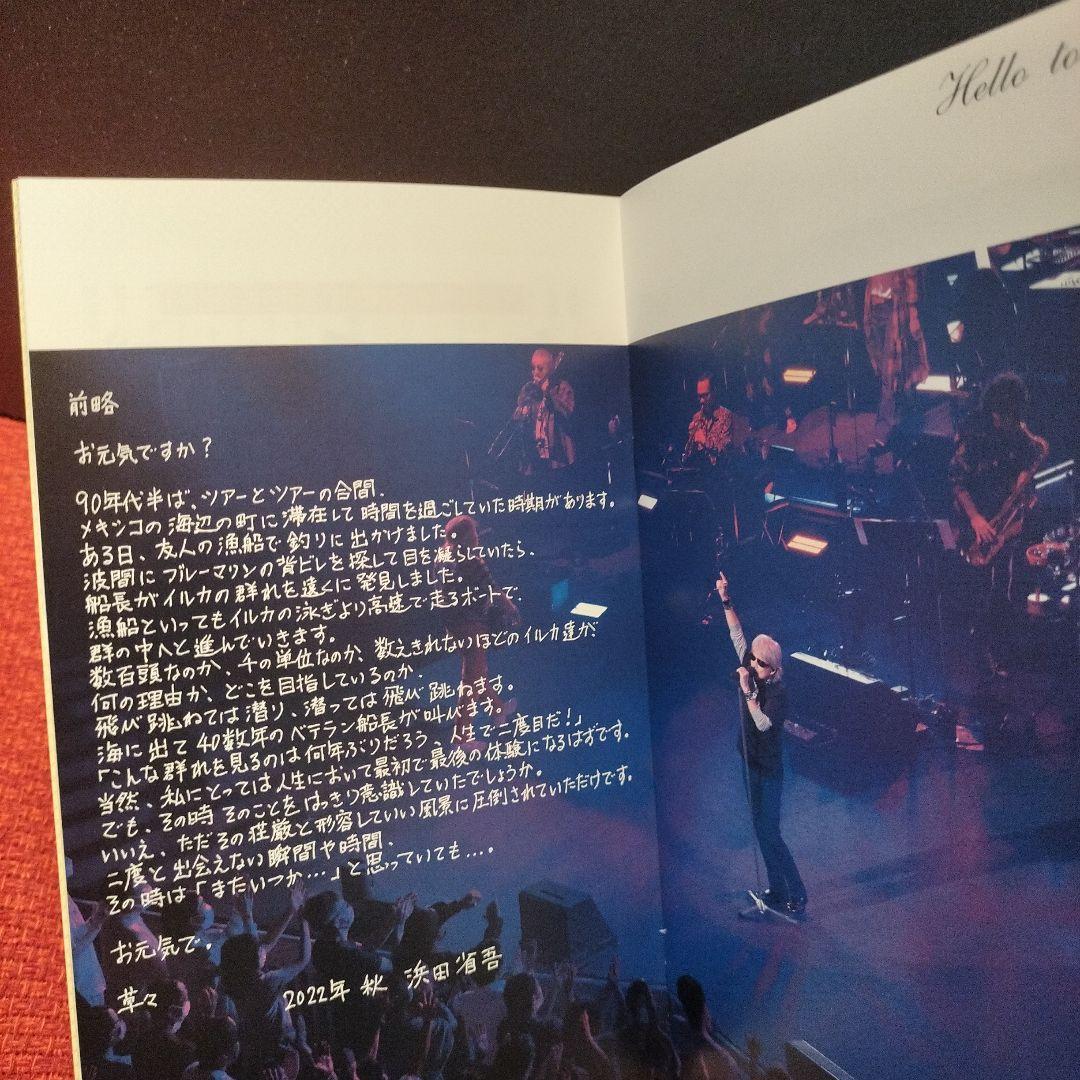 Hello to
前略
お元気ですか?
90年代半ば、ツアーとツアーの合間、
メキシコの海辺の町に滞在して時間を過ごしていた時期があります。
ある日、友人の漁船で釣りに出かけました。
波間にブルーマリンの背ビレを探して目を凝らしていたら、
船長がイルカの群れを遠くに発見しました。
漁船といってもイルカの泳ぎより高速で走るボートで、
群の中へと進んでいきます。
数百頭なのか、千の単位なのか、数えきれないほどのイルカ達が、
何の理由か、どこを目指しているのか、
飛び跳ねては潜り、潜っては飛び跳ねます。
海に出て40数年のベテラン船長が叫びます。
「こんな群れを見るのは何年ぶりだろう、人生で二度目だ!」
当然、私にとっては人生において最初で最後の体験になるはずです。
でも、その時そのことをはっきり意識していたでしょうか。
いいえ、ただその荘厳と形容していい風景に圧倒されていただけです。
二度と出会えない瞬間や時間、
その時は「またいつか…」と思っていても…。
お元気で。
草々
2022年 秋 浜田省吾